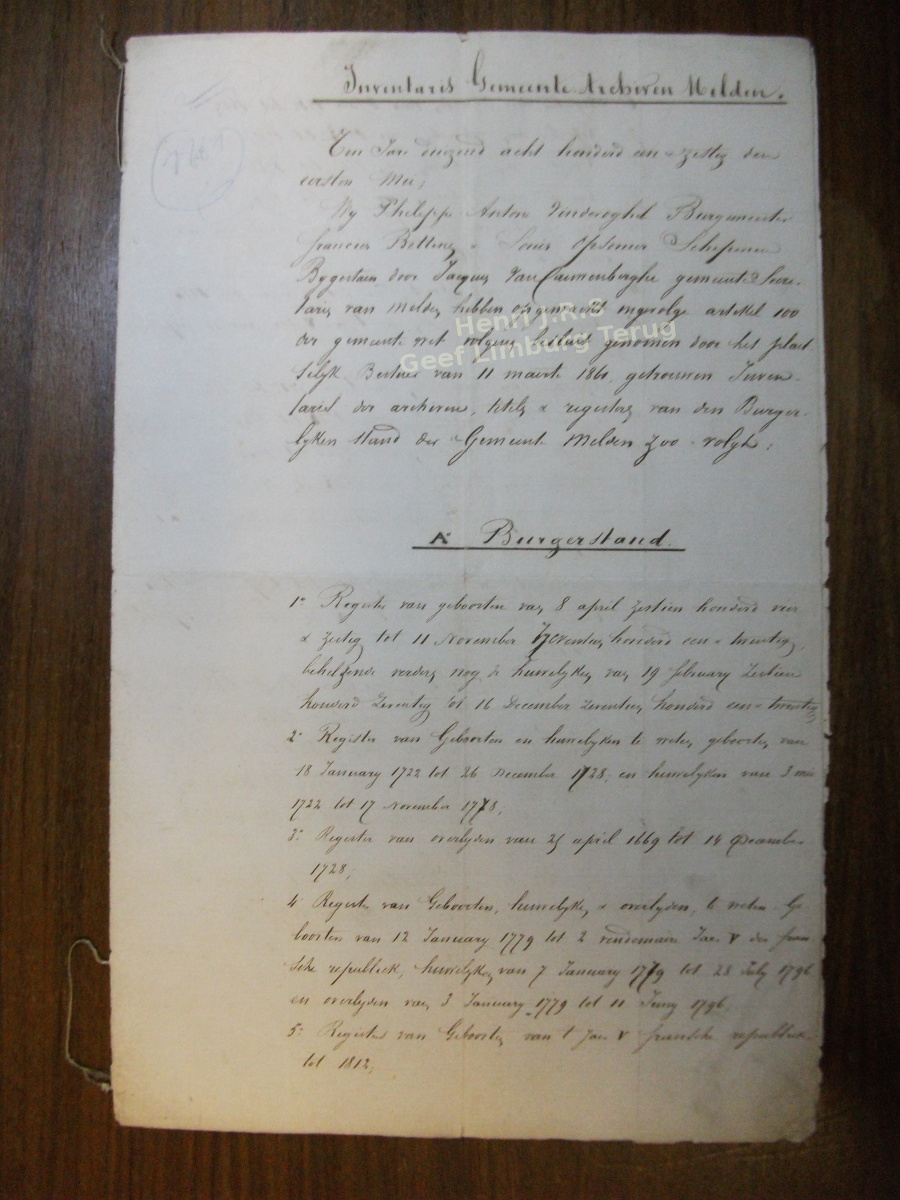 Inventaris Gemeente Archiven Melden.
Ten Jare duyzend acht honderd een & zestig den
eersten Mei,
Wy Philippe Antone Vindevoghel Burgmeester
francies Bottens & Louis Opsomer Schepenen
Bygestaen door Jacques Van Cauwenberghe gemeente Secre-
taris van Melden hebben opgemaekt ingevolge artikel 100
der gemeente wet volgens besluit genomen door het plaet
selyk Bestuer van 11 maerte 1861, getrouwen Inven-
taris der archieven, titels & registers van den Burger-
lyken stand der Gemeente Melden zoo volgt:
A. Burgerstand.
1° Register van geboorten van 8 april zestien honderd vier
& zestig tot 11 November zeventien honderd een & twentig,
behelzende verders nog de huwelyken van 19 february zestien
honderd zeventig tot 16 December zeventien honderd een & twentig
2° Register van Geboorten en huwelyken te weten geboorten van
18 January 1722 tot 26 December 1728, en huwelyken van 3 mei
1722 tot 17 November 1778;
3° Register van overlyden van 25 april 1669 tot 14 December
1728;
4° Register van Geboorten, huwelyken & overlyden, te weten Ge-
boorten van 12 January 1779 tot 2 vendemaire Jaer V der fran-
sche republiek, huwelyken van 7 January 1779 tot 28 July 1796
en overlyden van 3 January 1779 tot 11 Juny 1796.
5° Register van Geboorten van t Jaer V fransche republiek
tot 1812;
Henri J.R.B
Geef Limburg Terug